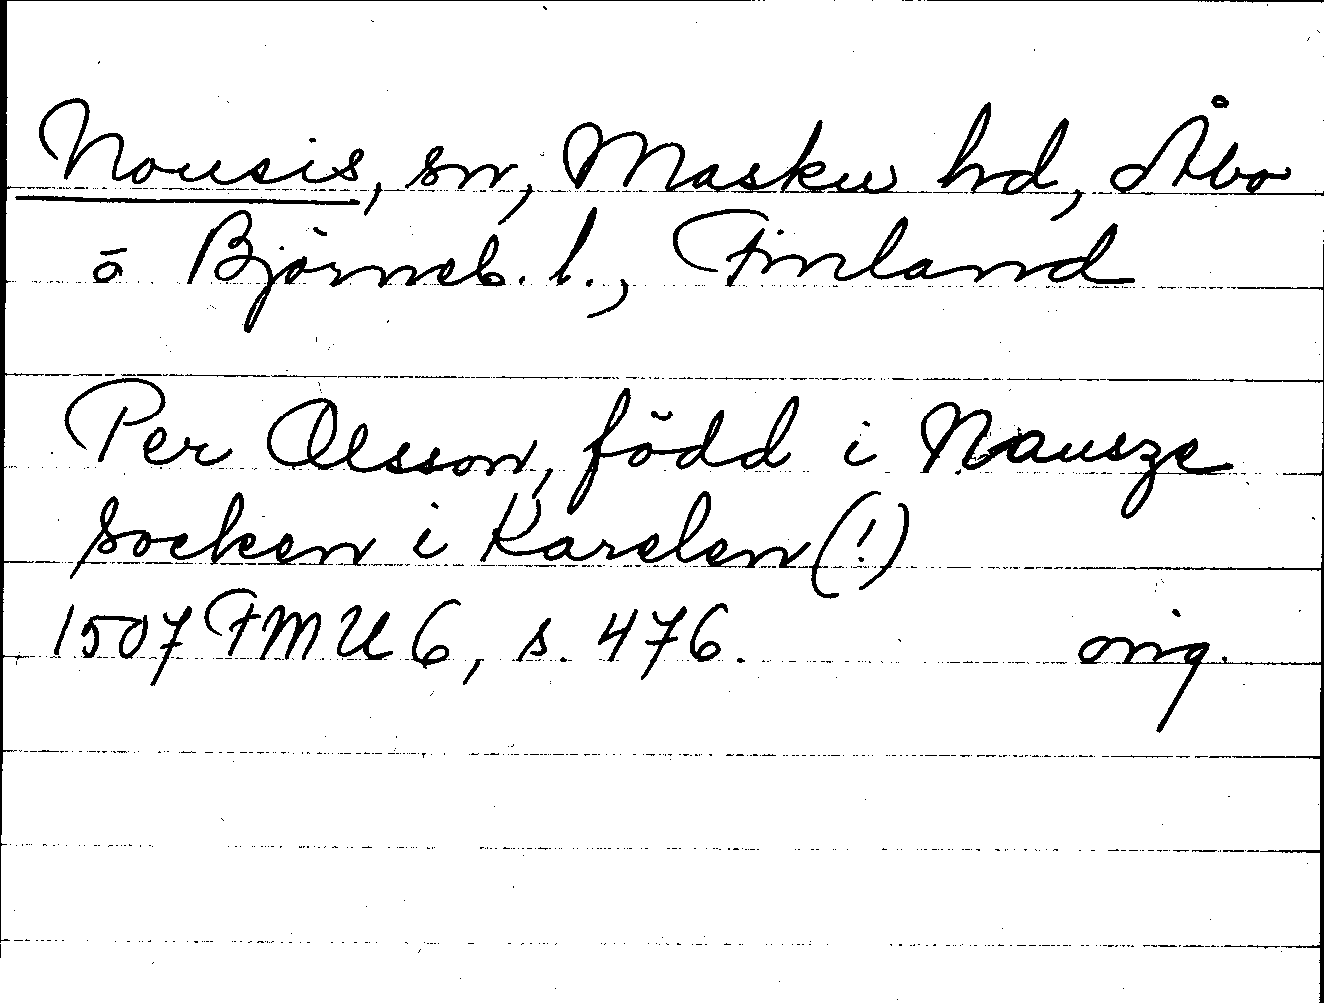 Nousis, sn, Masku hd, Åbo
o Björneb. l., Finland
Per Olsson, född i Nausze
socken i Karelen (!)
1507 FMU 6, s. 476. orig.